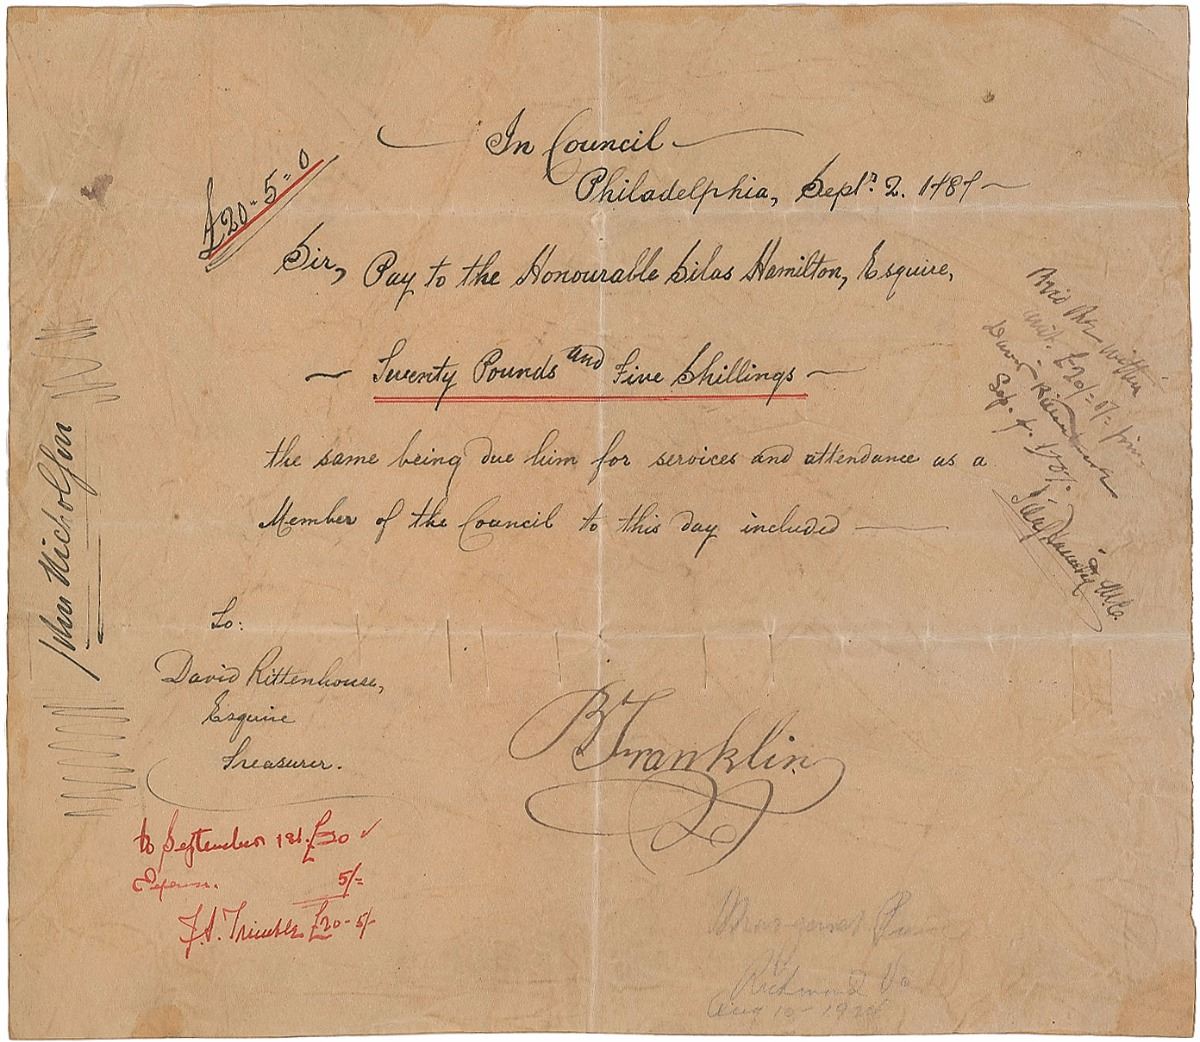 In Council
Philadelphia, Septr. 2. 1787
£20-5-0
Sir, Pay to the Honourable Silas Hamilton, Esquire,
Twenty Pounds and Five Shillings
the same being due him for services and attendance as a
Member of the Council to this day included
To:
David Rittenhouse,
Esquire
Treasurer.
B Franklin
John Nicholson
to September 1st. £20
Expense. 5/=
J.A. Trimble £20-5/-
David Rittenhouse
Sep.
Richmond Va
Aug 10